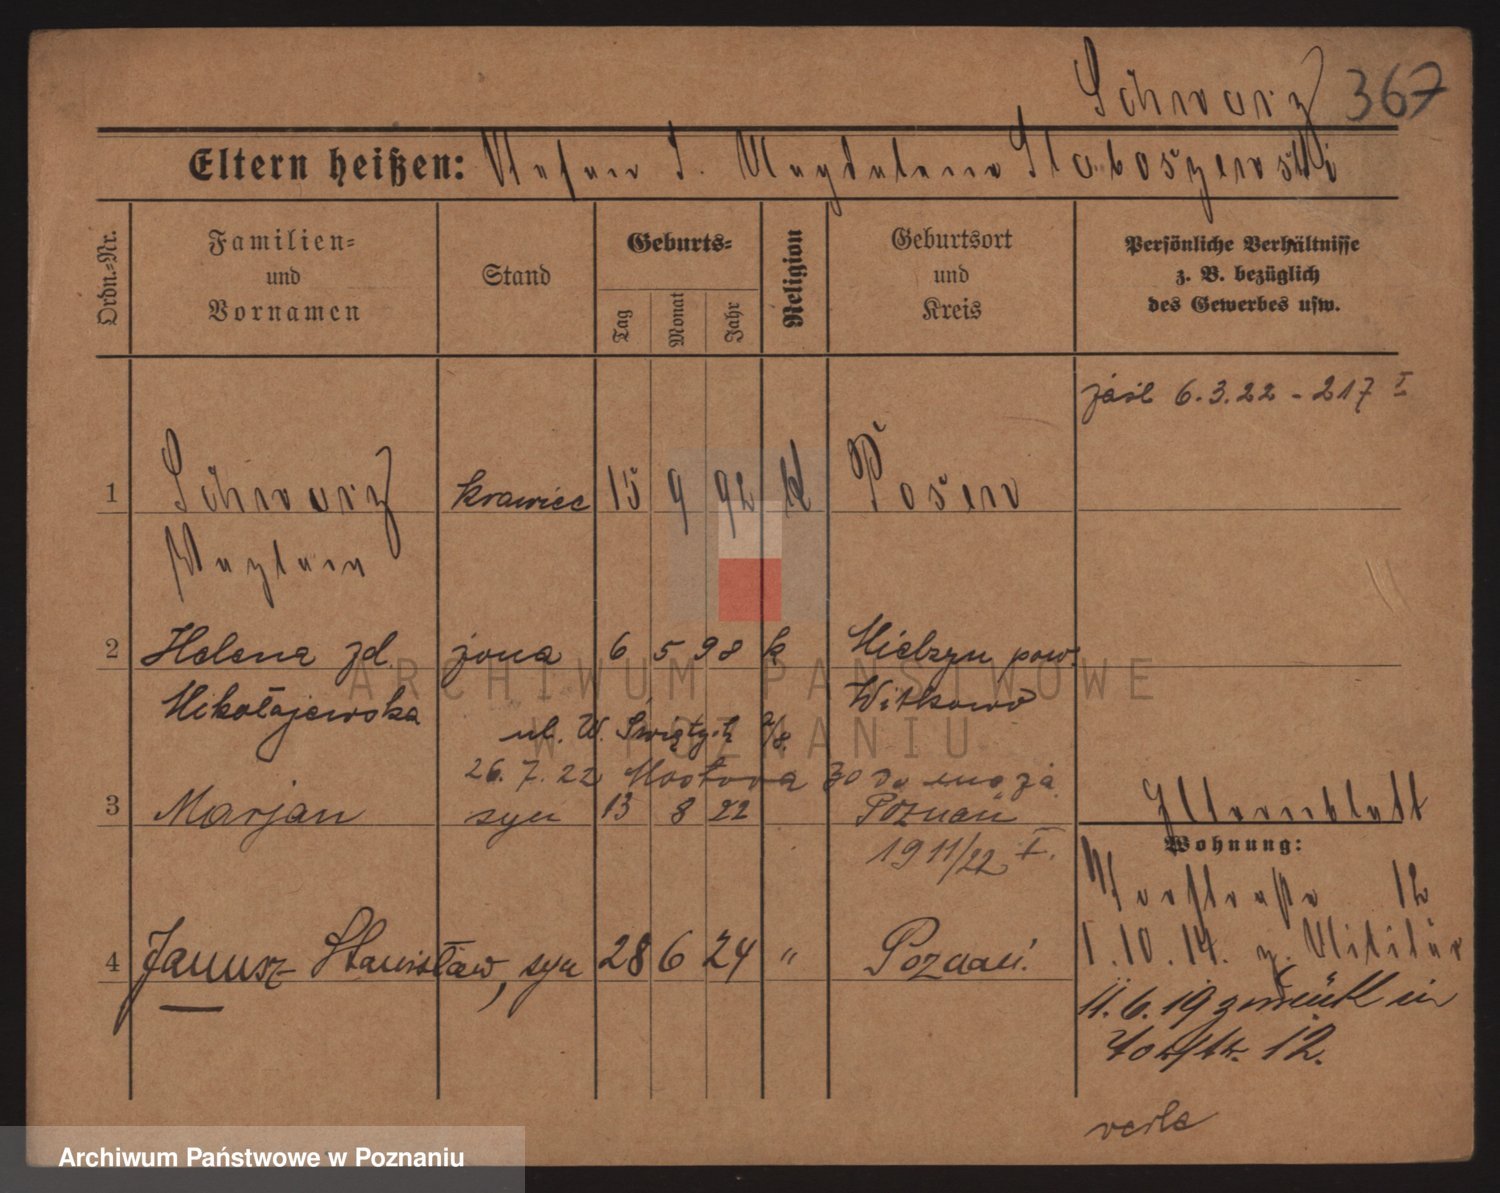 Schwarz 367
Eltern heißen: Stefan u. Magdalena Staboszewski
Ordn.-Nr.
Familien-
und
Vornamen
Stand
Geburts-
Tag
Monat
Jahr
Religion
Geburtsort
und
Kreis
Persönliche Verhältnisse
z. B. bezüglich
des Gewerbes usw.
6.3.22 - 217 I
1 Schwarz krawiec 15 9 92 k Posen
2 Helena zd. żona 6 5 98 k Mielzyn pow.
Mikołajewska Witkowo
ul. W. Świętych 2/8.
26.7.22 Mostowa 30
3 Marjan syn 13 8 22 Poznań
1911/22 I.
Elternblatt
Wohnung:
12
1.10.14. z. Militär
4 Janusz Stanisław, syn 28 6 24 " Poznań.
11.6.19 zurück in
Torstr. 12.